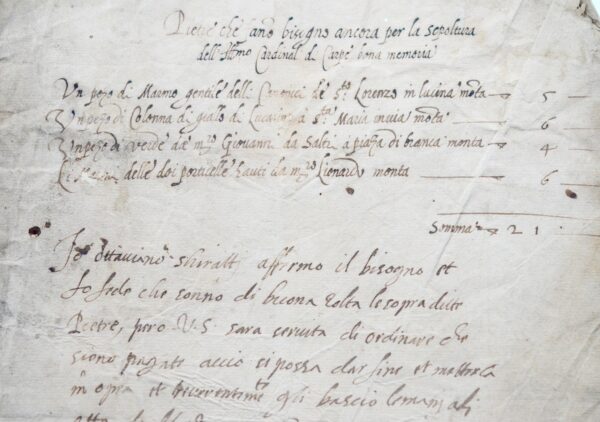 Pietre che fano bisigno ancora per la sepoltura
dell Ill.mo Cardinal di Carpe bona memoria
Un pezo di Marmo gentile delli Canonici de s.to Lorenzo in lucina monta 5
Un pezo di Colonna di giallo di a s.ta Maria in via monta 6
Un pezo di verde de m.ro Giovanni da Saltri a piaza di branca monta 4
delle doi porticelle hauti da m.ro Lionardo monta 6
Somma 21
Io ottaviano affermo il bisogno et
fo fede che sonno di buona le sopra ditte
Pietre, pero V.S. sara servita di ordinare che
siano pagate accio si possa dar fine et metterle
in opra et gli bascio le mani